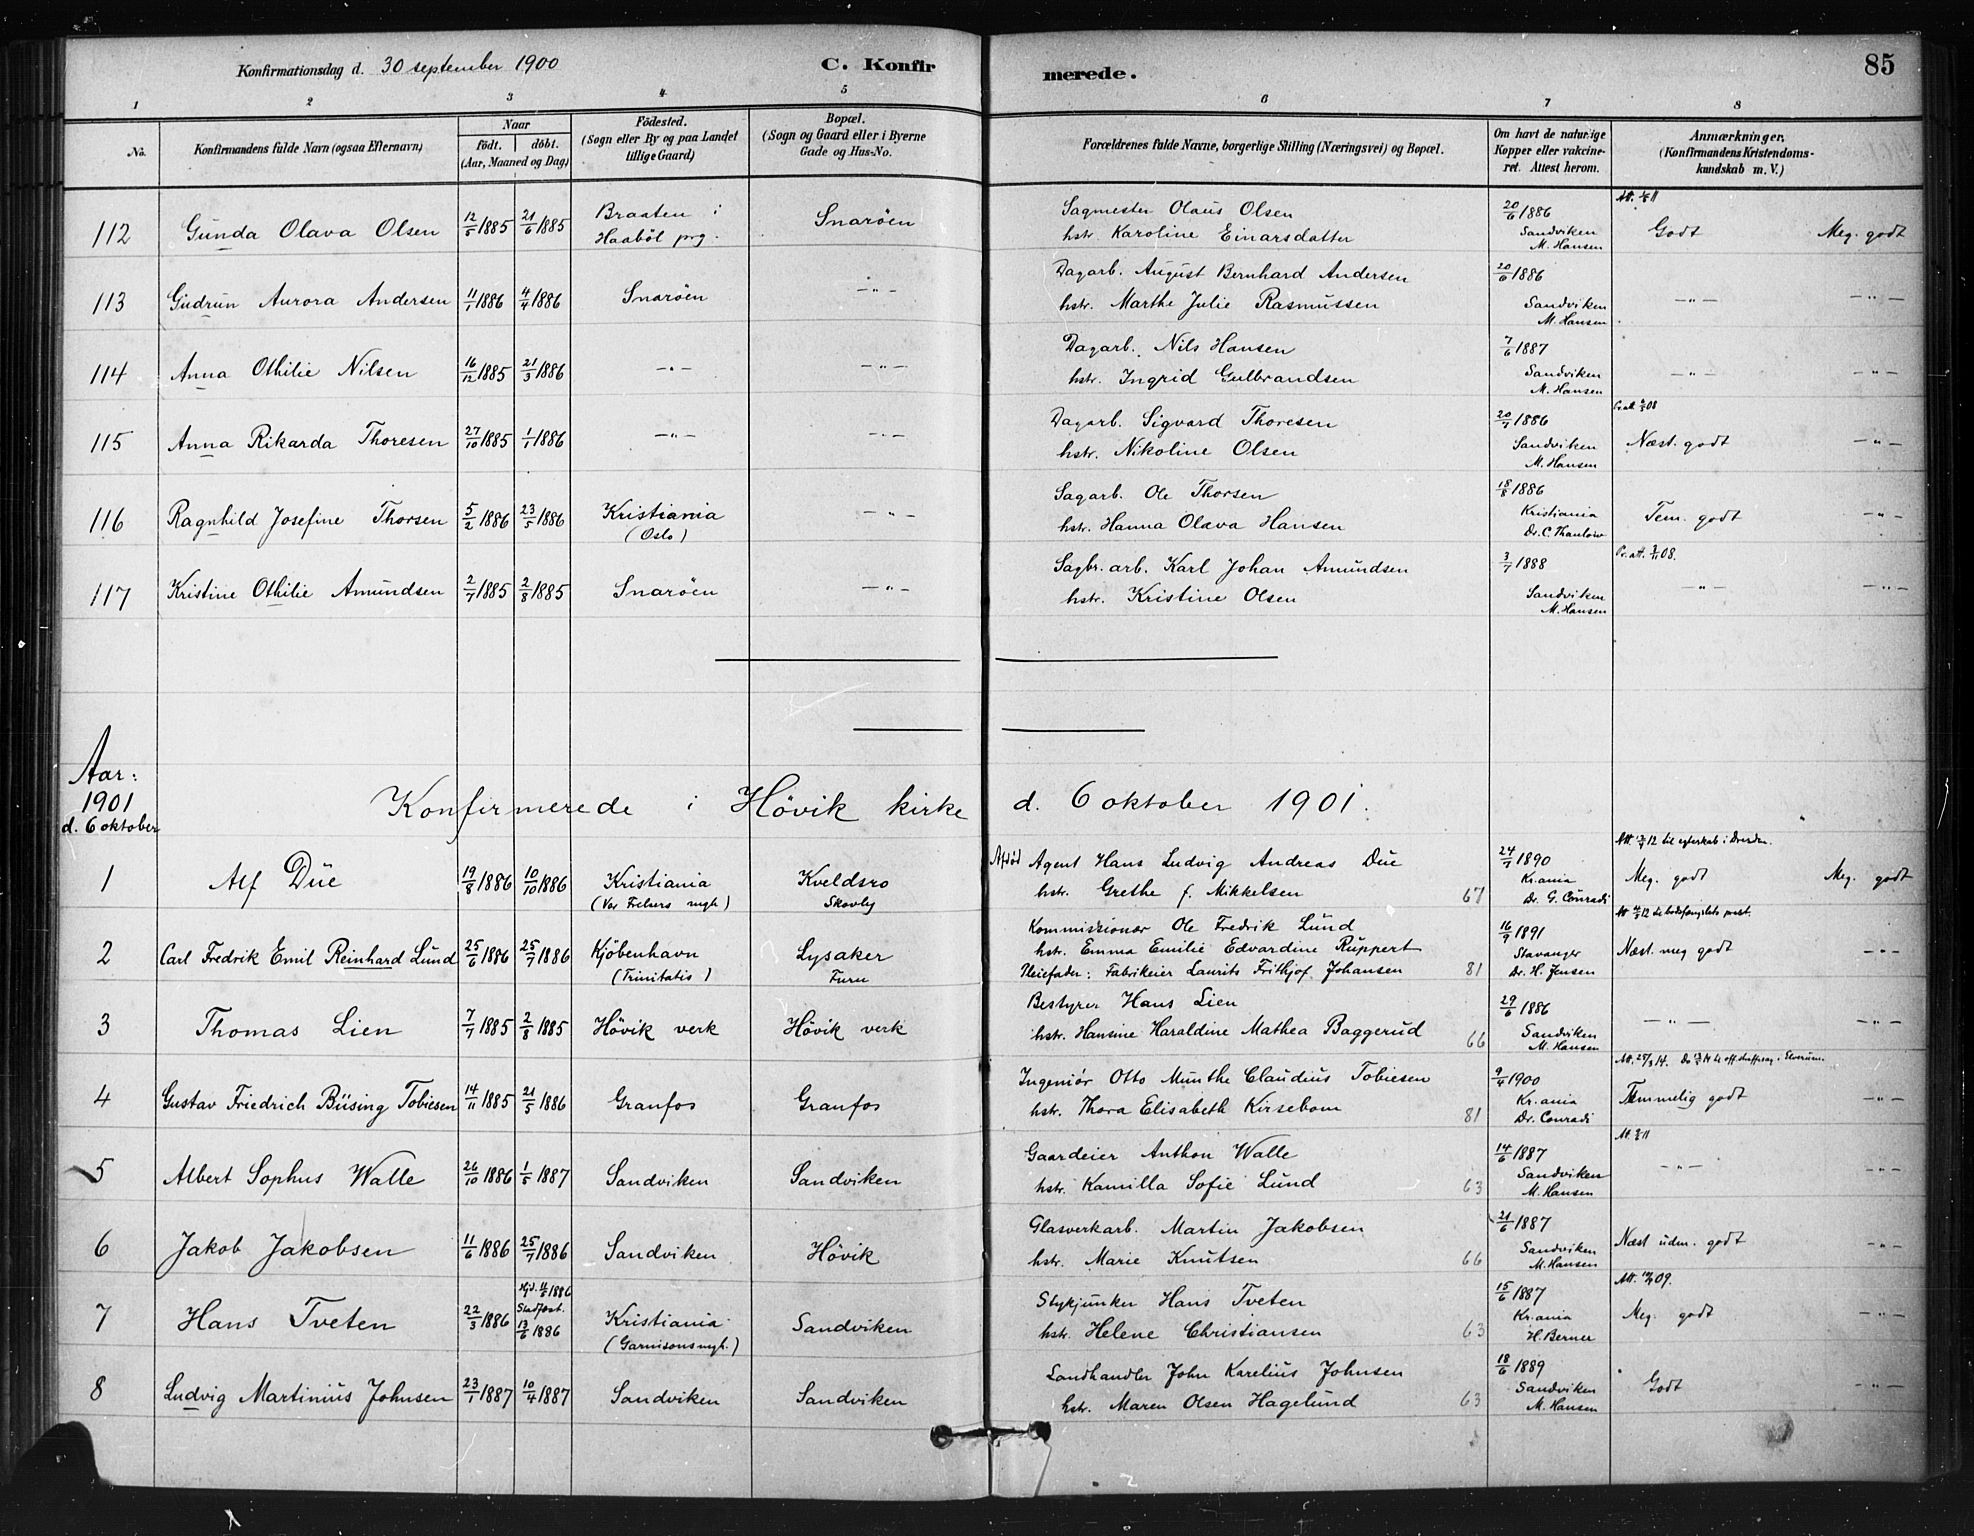 Konfirmationsdag d. 30 september 1900 C. Konfir merede. 85
1 2 3 4 5 6 7 8
No. Konfirmandens fulde Navn (ogsaa Efternavn) Naar Födested. Bopæl. Forældrenes fulde Navne, borgerlige Stilling (Næringsvei) og Bopæl. Om havt de naturlige Anmærkninger,
födt. döbt. (Sogn eller By og paa Landet (Sogn og Gaard eller i Byerne Kopper eller vakcine- (Konfirmandens Kristendoms-
(Aar, Maaned og Dag) tillige Gaard) Gade og Hus-No. ret. Attest herom. kundskab m. V.)
112 Gunda Olava Olsen 12/5 1885 21/6 1885 Braaten i Snaröen Sagmester Olaus Olsen 20/6 1886 Godt Meg. godt
Haaböl prg. hstr. Karoline Einarsdatter Sandviken
M. Hansen
113 Gudrun Aurora Andersen 11/1 1886 4/4 1886 Snaröen —"— Dagarb. August Bernhard Andersen 20/6 1886 —"— —"—
hstr. Marthe Julie Rasmussen Sandviken
M. Hansen
114 Anna Othilie Nilsen 16/12 1885 21/3 1886 —"— —"— Dagarb. Nils Hansen 7/6 1887 —"— —"—
hstr. Ingrid Gulbrandsen Sandviken
M. Hansen
115 Anna Rikarda Thoresen 27/10 1885 1/1 1886 —"— —"— Dagarb. Sigvard Thoresen 20/7 1886 Næst. godt —"—
hstr. Nikoline Olsen Sandviken
M. Hansen
116 Ragnhild Josefine Thorsen 5/2 1886 23/5 1886 Kristiania —"— Sagarb. Ole Thorsen 18/8 1886 Tem. godt —"—
(Oslo) hstr. Hanna Olava Hansen Kristiania
Dr. C. Thaulow
117 Kristine Othilie Amundsen 2/7 1885 2/8 1885 Snaröen —"— Sagbr. arb. Karl Johan Amundsen 3/7 1888 —"— —"—
hstr. Kristine Olsen Sandviken
M. Hansen
Aar:
1901
d. 6 oktober
Konfirmerede i Hövik kirke d. 6 oktober 1901.
1 Alf Düe 19/8 1886 10/10 1886 Kristiania Kveldsro Afdöd Agent Hans Ludvig Andreas Due 24/7 1890 Meg. godt Meg. godt
(Vor Frelsers mgh.) Skovly hstr. Grethe f. Mikkelsen 67 Kr.ania
Dr. G. Conradi
2 Carl Fredrik Emil Reinhard Lund 25/6 1886 25/7 1886 Kjöbenhavn Lysaker Kommissionær Ole Fredrik Lund 16/9 1891 Næst. meg godt —"—
(Trinitatis) Furu hstr. Emma Emilie Edvardine Ruppert Stavanger
Pleiefader: Fabrikeier Laurits Frithjof Johansen 81 Dr. H. Jensen
3 Thomas Lien 7/7 1885 2/8 1885 Hövik verk Hövik verk Bestyrer Hans Lien 29/6 1886 —"— —"—
hstr. Hansine Haraldine Mathea Baggerud 66 Sandviken
M. Hansen
4 Gustav Friedrich Büsing Tobiesen 14/11 1885 21/5 1886 Granfos Granfos Ingeniör Otto Munthe Claudius Tobiesen 9/4 1900 Temmelig godt —"—
hstr. Thora Elisabeth Kirsebom 81 Kr.ania
Dr. Conradi
5 Albert Sophus Walle 26/10 1886 1/5 1887 Sandviken Sandviken Gaardeier Anthon Walle 14/6 1887 —"— —"—
hstr. Kamilla Sofie Lund 63 Sandviken
M. Hansen
6 Jakob Jakobsen 11/6 1886 25/7 1886 Sandviken Hövik Glasverkarb. Martin Jakobsen 21/6 1887 Næst udm. godt —"—
hstr. Marie Knutsen 66 Sandviken
M. Hansen
7 Hans Tveten 22/3 1886 Stadfæst. 13/6 1886 Kristiania Sandviken Stykjunker Hans Tveten 15/6 1887 Meg. godt —"—
(Garnisonsmgh.) hstr. Helene Christiansen 63 Kr.ania
H. Berner
8 Ludvig Martinius Johnsen 23/1 1887 10/4 1887 Sandviken Sandviken Landhandler John Karelius Johnsen 18/6 1889 Godt —"—
hstr. Maren Olsen Hagelund 63 Sandviken
M. Hansen